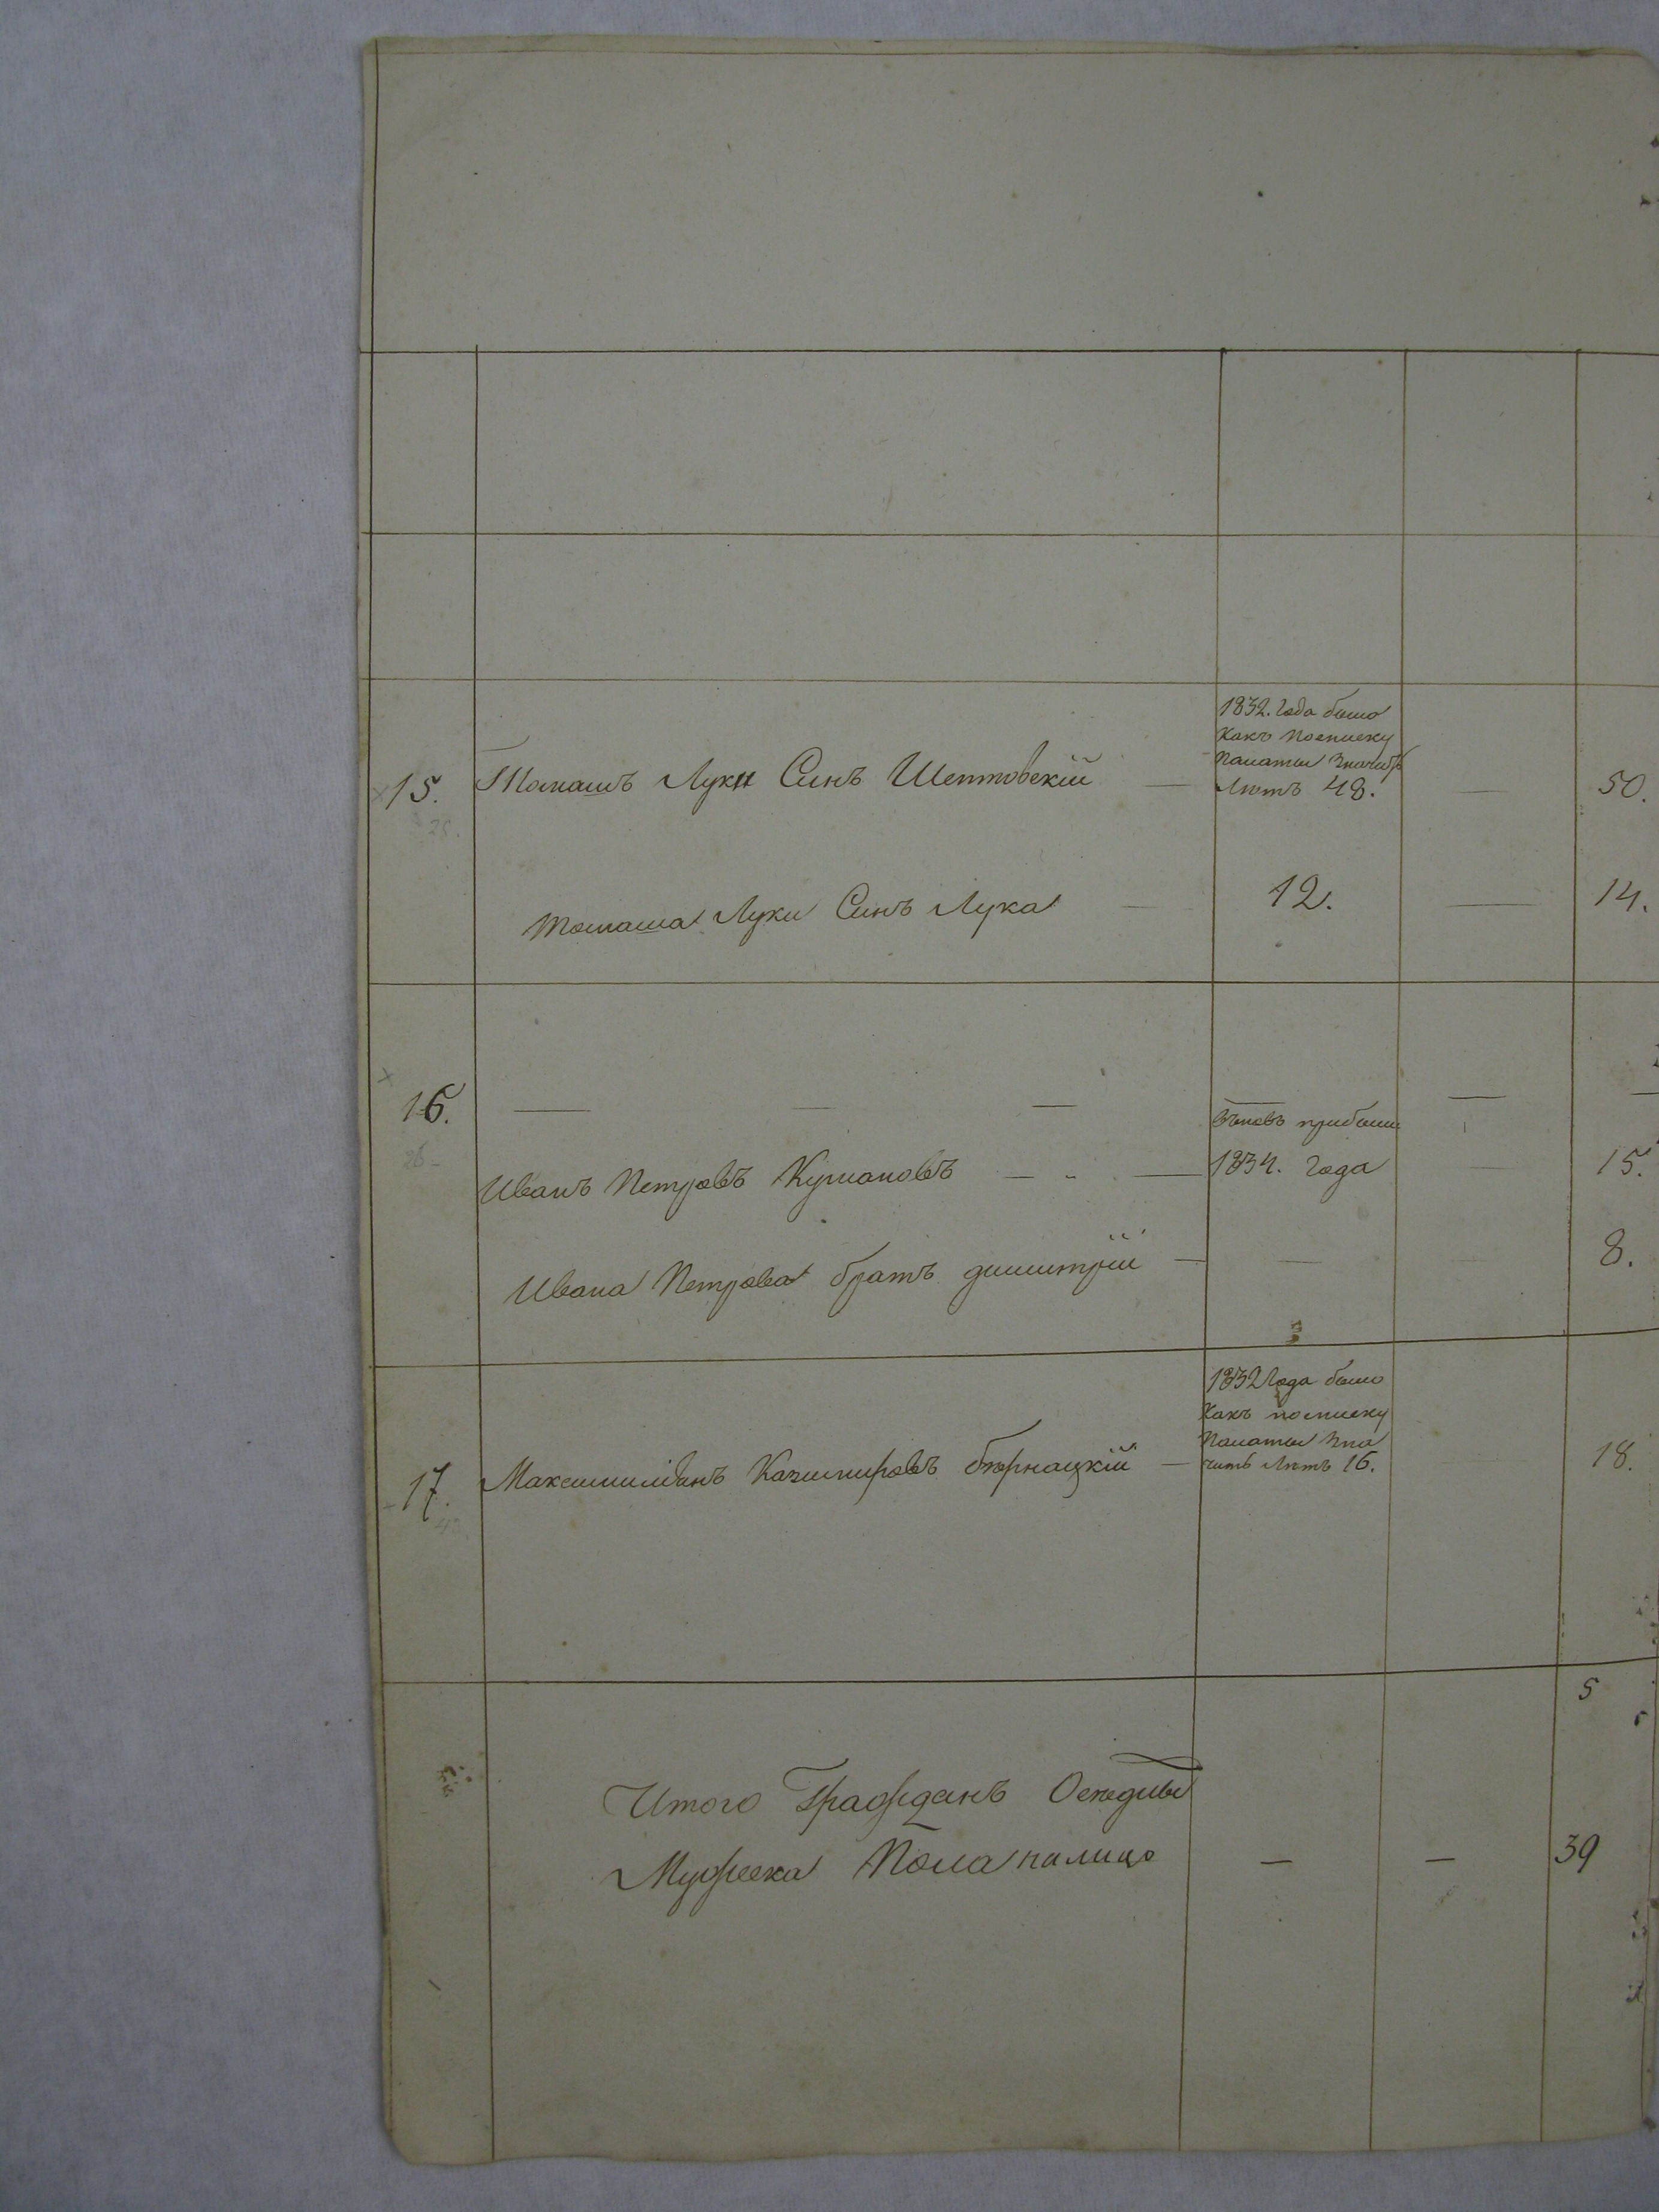 1832. Года было
Какъ посписку
Палаты Значитъ
15. Томашъ Луки Синъ Шептовскій — Лѣтъ 48. — 50.
Томаша Луки Синъ Лука — 12. — 14.
16. — — — —
Вновь прибыли
Иванъ Петровъ Кумановъ — 1834. Года — 15.
Ивана Петрова братъ димитрій — — — 8.
1832 Года было
Какъ посписку
Палаты Зна
17. Максимиліанъ Казимировъ бѣрнацкій — читъ Лѣтъ 16. 18.
5
Итого Гражданъ Осѣдлы
Мужеска Пола налицо — — 39